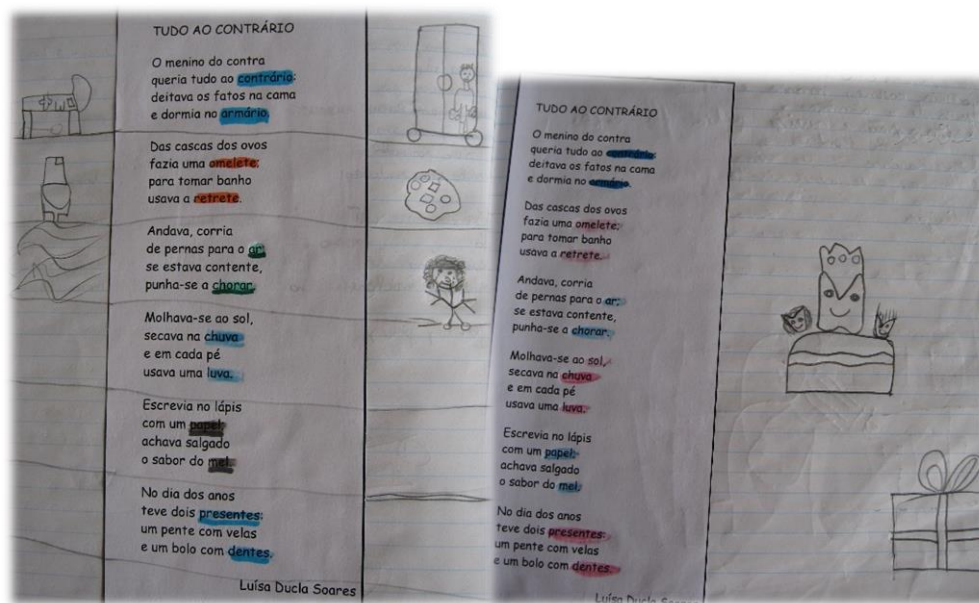 TUDO AO CONTRÁRIO
O menino do contra
queria tudo ao contrário:
deitava os fatos na cama
e dormia no armário.
Das cascas dos ovos
fazia uma omelete;
para tomar banho
usava a retrete.
Andava, corria
de pernas para o ar;
se estava contente,
punha-se a chorar.
Molhava-se ao sol,
secava na chuva
e em cada pé
usava uma luva.
Escrevia no lápis
com um papel;
achava salgado
o sabor do mel.
No dia dos anos
teve dois presentes:
um pente com velas
e um bolo com dentes.
Luísa Ducla Soares
TUDO AO CONTRÁRIO
O menino do contra
queria tudo ao contrário:
deitava os fatos na cama
e dormia no armário.
Das cascas dos ovos
fazia uma omelete;
para tomar banho
usava a retrete.
Andava, corria
de pernas para o ar;
se estava contente,
punha-se a chorar.
Molhava-se ao sol,
secava na chuva
e em cada pé
usava uma luva.
Escrevia no lápis
com um papel;
achava salgado
o sabor do mel.
No dia dos anos
teve dois presentes:
um pente com velas
e um bolo com dentes.
Luísa Ducla Soares